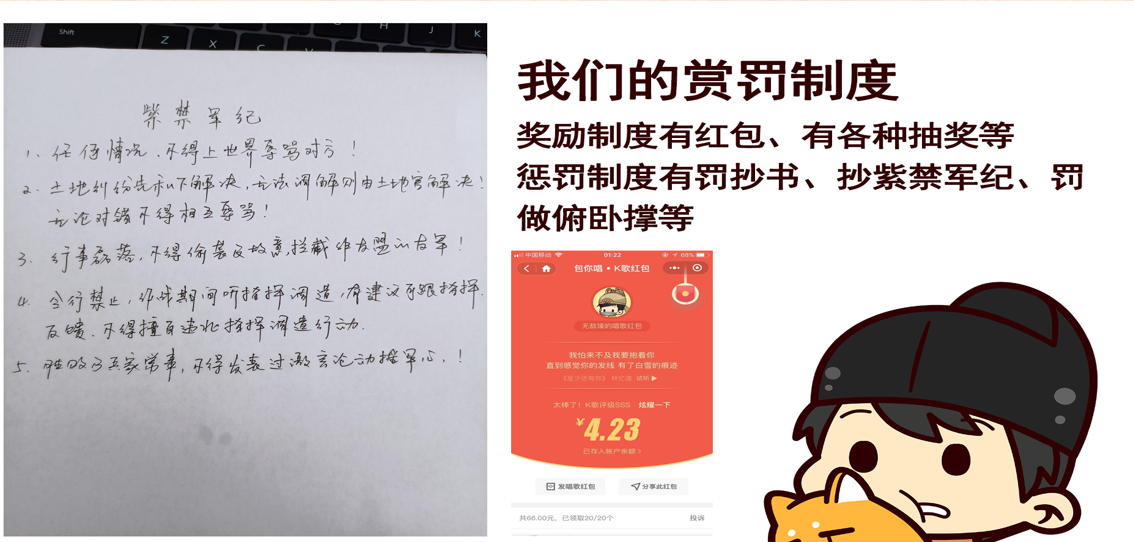 Shift
Z
X
C
V
B
H
J
K
紫禁军纪
1、任何情况、不得上世界辱骂对方！
2、土地纠纷先私下解决，无法调解则由土地官解决！
无论对错不得相互辱骂！
3、行事磊落，不得偷袭及故意拦截印友盟的友军！
4、令行禁止，作战期间听指挥调遣，有建议可跟指挥
反馈、不得擅自违北指挥调遣行动.
5、胜败乃兵家常事，不得发表过激言论动摇军心.！
我们的赏罚制度
奖励制度有红包、有各种抽奖等
惩罚制度有罚抄书、抄紫禁军纪、罚
做俯卧撑等
中国移动
01:22
68%
包你唱 • K歌红包
无敌臻的唱歌红包
我怕来不及我要抱着你
直到感觉你的发线 有了白雪的痕迹
《至少还有你》 林忆莲 试听
太棒了！K歌评级SSS 炫耀一下
¥4.23
已存入账户余额 >
发唱歌红包
分享此红包
共66.00元，已领取20/20个
投诉